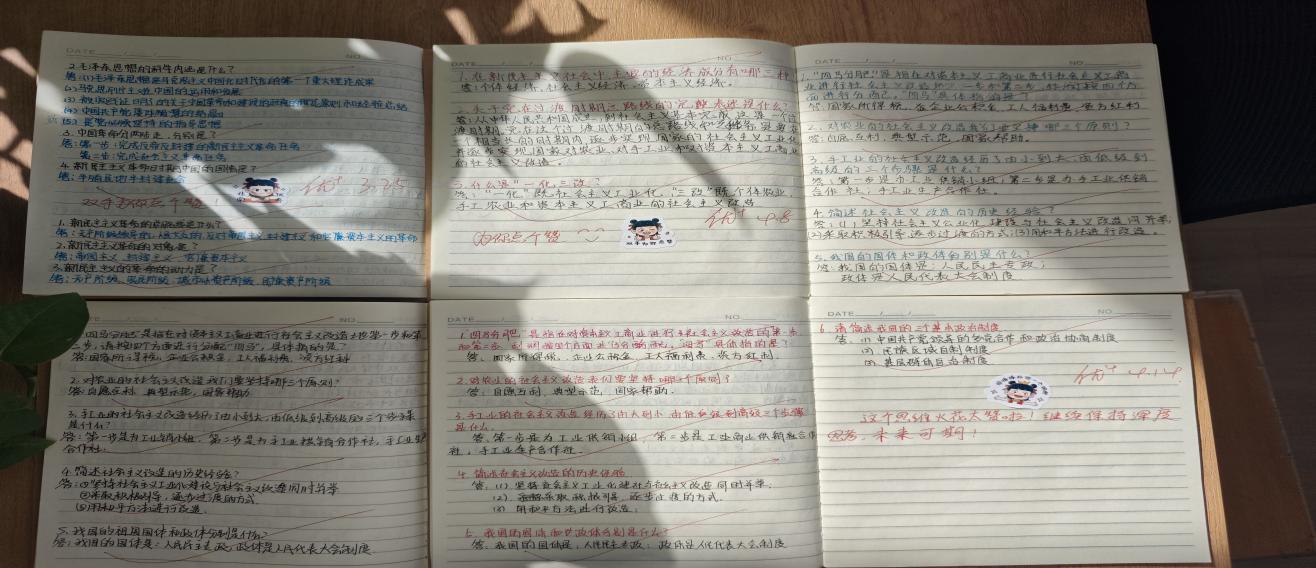 DATE
NO.
2.毛泽东思想的科学内涵是什么?
答:(1)毛泽东思想是马克思主义中国化时代化的第一个重大理论成果
(2)马克思列宁主义在中国的运用和发展
(3)被实践证明了的关于中国革命和建设的正确的理论原则和经验总结
(4)中国共产党集体智慧的结晶
(5)是党必须坚持的指导思想
3.中国革命分两步走,分别是?
答:第一步:完成反帝反封建的新民主主义革命任务
第二步:完成社会主义革命任务
4.新民主主义革命时期中国的国情是?
答:半殖民地半封建社会
优+ 3.25
双手为你点个赞!
1.新民主主义革命的总路线是什么?
答:无产阶级领导的,人民大众的,反对帝国主义,封建主义和官僚资本主义的革命
2.新民主主义革命的对象是?
答:帝国主义、封建主义、官僚资本主义
3.新民主主义的革命的动力是?
答:无产阶级、农民阶级、城市小资产阶级、民族资产阶级
1.在新民主主义社会中,主要的经济成分有哪三种
答:个体经济,社会主义经济,资本主义经济。
2.关于党在过渡时期总路线的完整表述是什么?
答:从中华人民共和国成立,到社会主义改造基本完成,这是一个过
渡时期。党在这个过渡时期的总路线和总任务,是要在
一个相当长的时期内,逐步实现国家的社会主义工业化
并逐步实现国家对农业、对手工业和对资本主义工商业
的社会主义改造。
3.什么是"一化三改"?
答:"一化"既社会主义工业化,"三改"既个体农业
手工农业和资本主义工商业的社会主义改造
优+ 4.8
为你点个赞
双手为你点赞
1."四马分肥"是指在对资本主义工商业进行社会主义改造
答:国家所得税、企业公积金、工人福利费、资方红利
2.对农业的社会主义改造我们要坚持哪三个原则?
答:自愿互利,典型示范,国家帮助。
3.手工业的社会主义改造经历了由小到大,由低级到
高级的三个步骤是什么?
答:第一步是办手工业供销小组;第二步是办手工业供销
合作社;手工业生产合作社。
4.简述社会主义改造的历史经验?
答:(1)坚持社会主义工业化建设与社会主义改造同时并举
(2)采取积极引导,逐步过渡的方式,(3)用和平方法进行改造。
5.我国的国体和政体分别是什么?
答:我国的国体是:人民民主专政;
政体是人民代表大会制度
DATE
NO.
2.对农业的社会主义改造我们要坚持哪三个原则?
答:自愿互利,典型示范,国家帮助
3.手工业的社会主义改造经历了由小到大,由低级到高级的三个步骤
是什么?
4.简述社会主义改造的历史经验?
答:①坚持社会主义工业化建设与社会主义改造同时并举
②采取积极引导,逐步过渡的方式
③用和平方法进行改造.
5.我国的国体和政体分别是什么?
答:我国的国体是:人民民主专政,政体是人民代表大会制度
DATE
NO.
答:国家所得税,企业公积金,工人福利费,资方红利.
2.对农业的社会主义改造我们要坚持哪三个原则?
答:自愿互利,典型示范,国家帮助.
是什么.
社,手工业生产合作社.
4.简述社会主义改造的历史经验
答:(1)坚持社会主义工业化建设与社会主义改造同时并举;
(2)采取积极引导、逐步过渡的方式.
(3)用和平方法进行改造;
5.我国的国体和政体分别是什么?
答:我国的国体是,人民民主专政;政体是人民代表大会制度
DATE
NO.
6.请简述我国的三个基本政治制度
答:(1)中国共产党领导的多党合作和政治协商制度
(2)民族区域自制制度
(3)基层群体自治制度
优+ 4.14
这个思维火花太赞啦!继续保持深度
思考,未来可期!